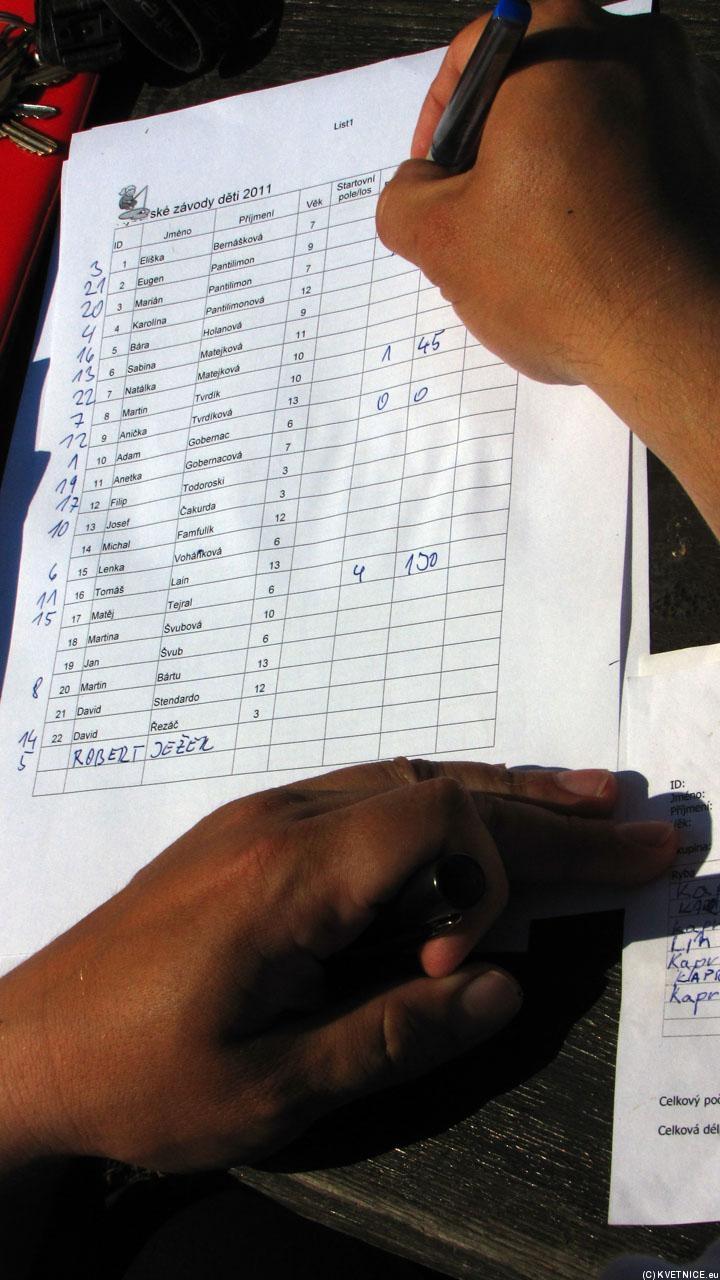 List1
ské závody dětí 2011
ID Jméno Příjmení Věk Startovní pole/los
3 1 Eliška Bernášková 7
21 2 Eugen Pantilimon 9
20 3 Marián Pantilimon 7
4 4 Karolína Pantilimonová 12
16 5 Bára Holanová 9
13 6 Sabina Matejková 11
22 7 Natálka Matejková 10
7 8 Martin Tvrdík 10 1 45
12 9 Anička Tvrdíková 13
1 10 Adam Gobernac 6 0 0
19 11 Anetka Gobernacová 7
17 12 Filip Todoroski 3
10 13 Josef Čakurda 3
14 Michal Famfulík 12
6 15 Lenka Voháňková 6
11 16 Tomáš Lain 13
15 17 Matěj Tejral 6 4 130
18 Martina Švubová 10
19 Jan Švub 6
8 20 Martin Bártu 13
21 David Stendardo 12
14 22 David Řezáč 3
5 ROBERT JEŽEK
ID:
Jméno:
Příjmení:
Věk:
kupina:
Ryba
Kapr
Lín
Kapr
KAPR
Kapr
Celkový poč
Celková dél
(C) KVETNICE.eu